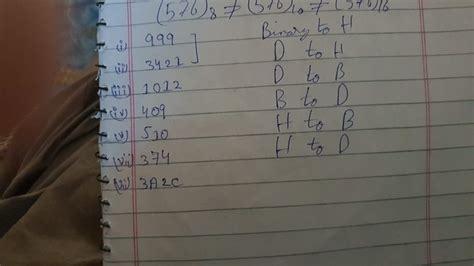 (576)8 ≠ (576)10 ≠ (576)16
(i) 999 Binary to H
(ii) 3421 D to H
(iii) 1012 D to B
(iv) 409 B to D
(v) 510 H to B
(vi) 374 H to D
(vii) 3A2C